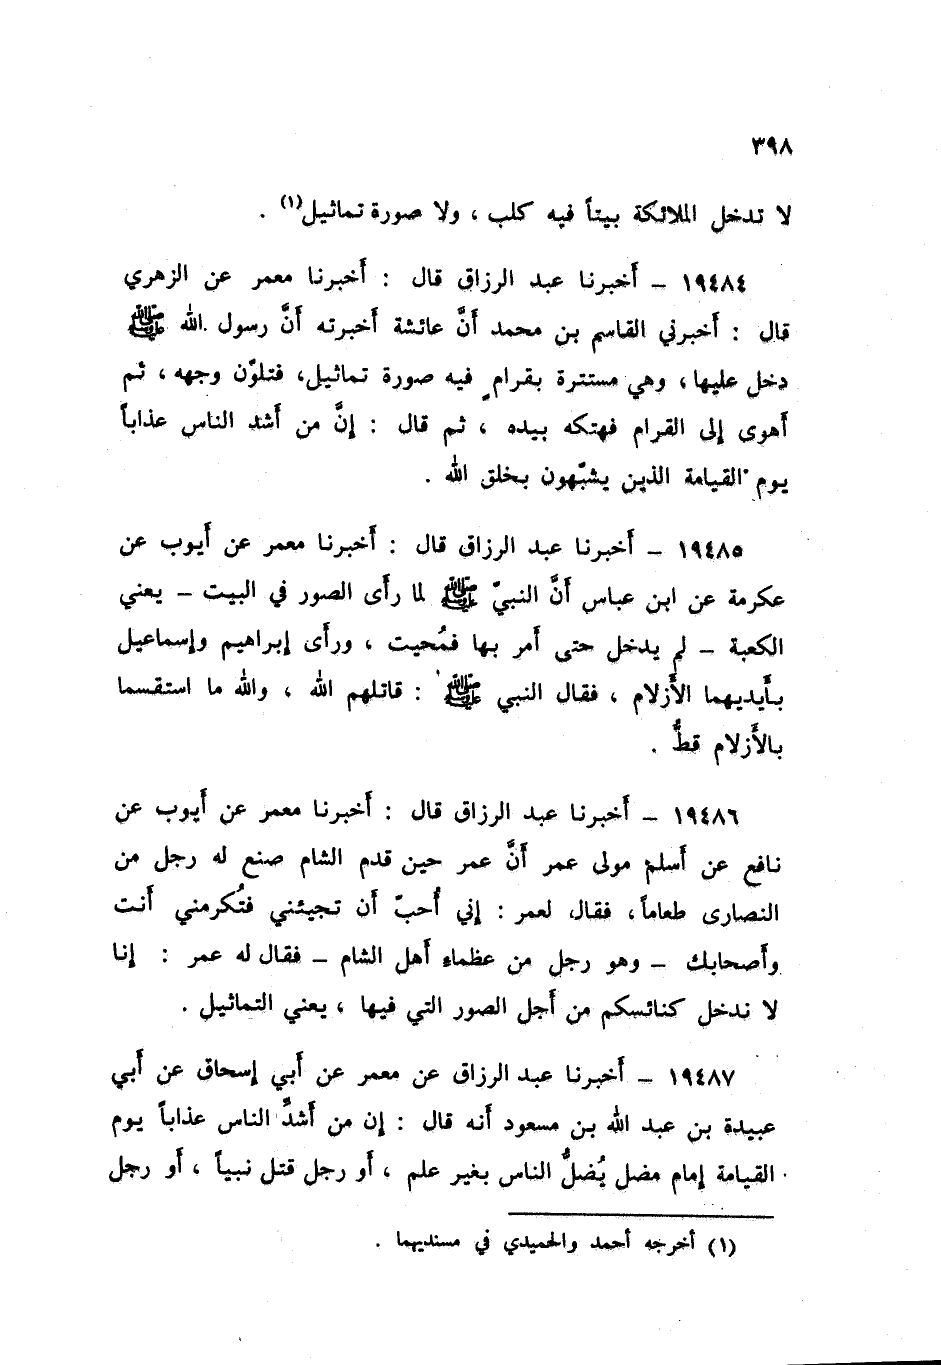 ٣٩٨
لا تدخل الملائكة بيتاً فيه كلب ، ولا صورة تماثيل(١) .
١٩٤٨٤ – أخبرنا عبد الرزاق قال : أخبرنا معمر عن الزهري
قال : أخبرني القاسم بن محمد أنَّ عائشة أخبرته أنَّ رسول الله ﷺ
دخل عليها ، وهي مستترة بقرامٍ فيه صورة تماثيل، فتلوّن وجهه ، ثم
أهوى إلى القرام فهتكه بيده ، ثم قال : إنَّ من أشد الناس عذاباً
يوم القيامة الذين يشبّهون بخلق الله .
١٩٤٨٥ – أخبرنا عبد الرزاق قال : أخبرنا معمر عن أيوب عن
عكرمة عن ابن عباس أنَّ النبيّ ﷺ لما رأى الصور في البيت – يعني
الكعبة – لم يدخل حتى أمر بها فمُحيت ، ورأى إبراهيم وإسماعيل
بأيديهما الأزلام ، فقال النبي ﷺ : قاتلهم الله ، والله ما استقسما
بالأزلام قطُّ .
١٩٤٨٦ – أخبرنا عبد الرزاق قال : أخبرنا معمر عن أيوب عن
نافع عن أسلم مولى عمر أنَّ عمر حين قدم الشام صنع له رجل من
النصارى طعاماً، فقال لعمر : إني أُحبّ أن تجيئني فتُكرمني أنت
وأصحابك – وهو رجل من عظماء أهل الشام – فقال له عمر : إنا
لا ندخل كنائسكم من أجل الصور التي فيها ، يعني التماثيل .
١٩٤٨٧ – أخبرنا عبد الرزاق عن معمر عن أبي إسحاق عن أبي
عبيدة بن عبد الله بن مسعود أنه قال : إن من أشدِّ الناس عذاباً يوم
القيامة إمام مضل يُضلُّ الناس بغير علم ، أو رجل قتل نبياً ، أو رجل
(١) أخرجه أحمد والحميدي في مسنديهما .